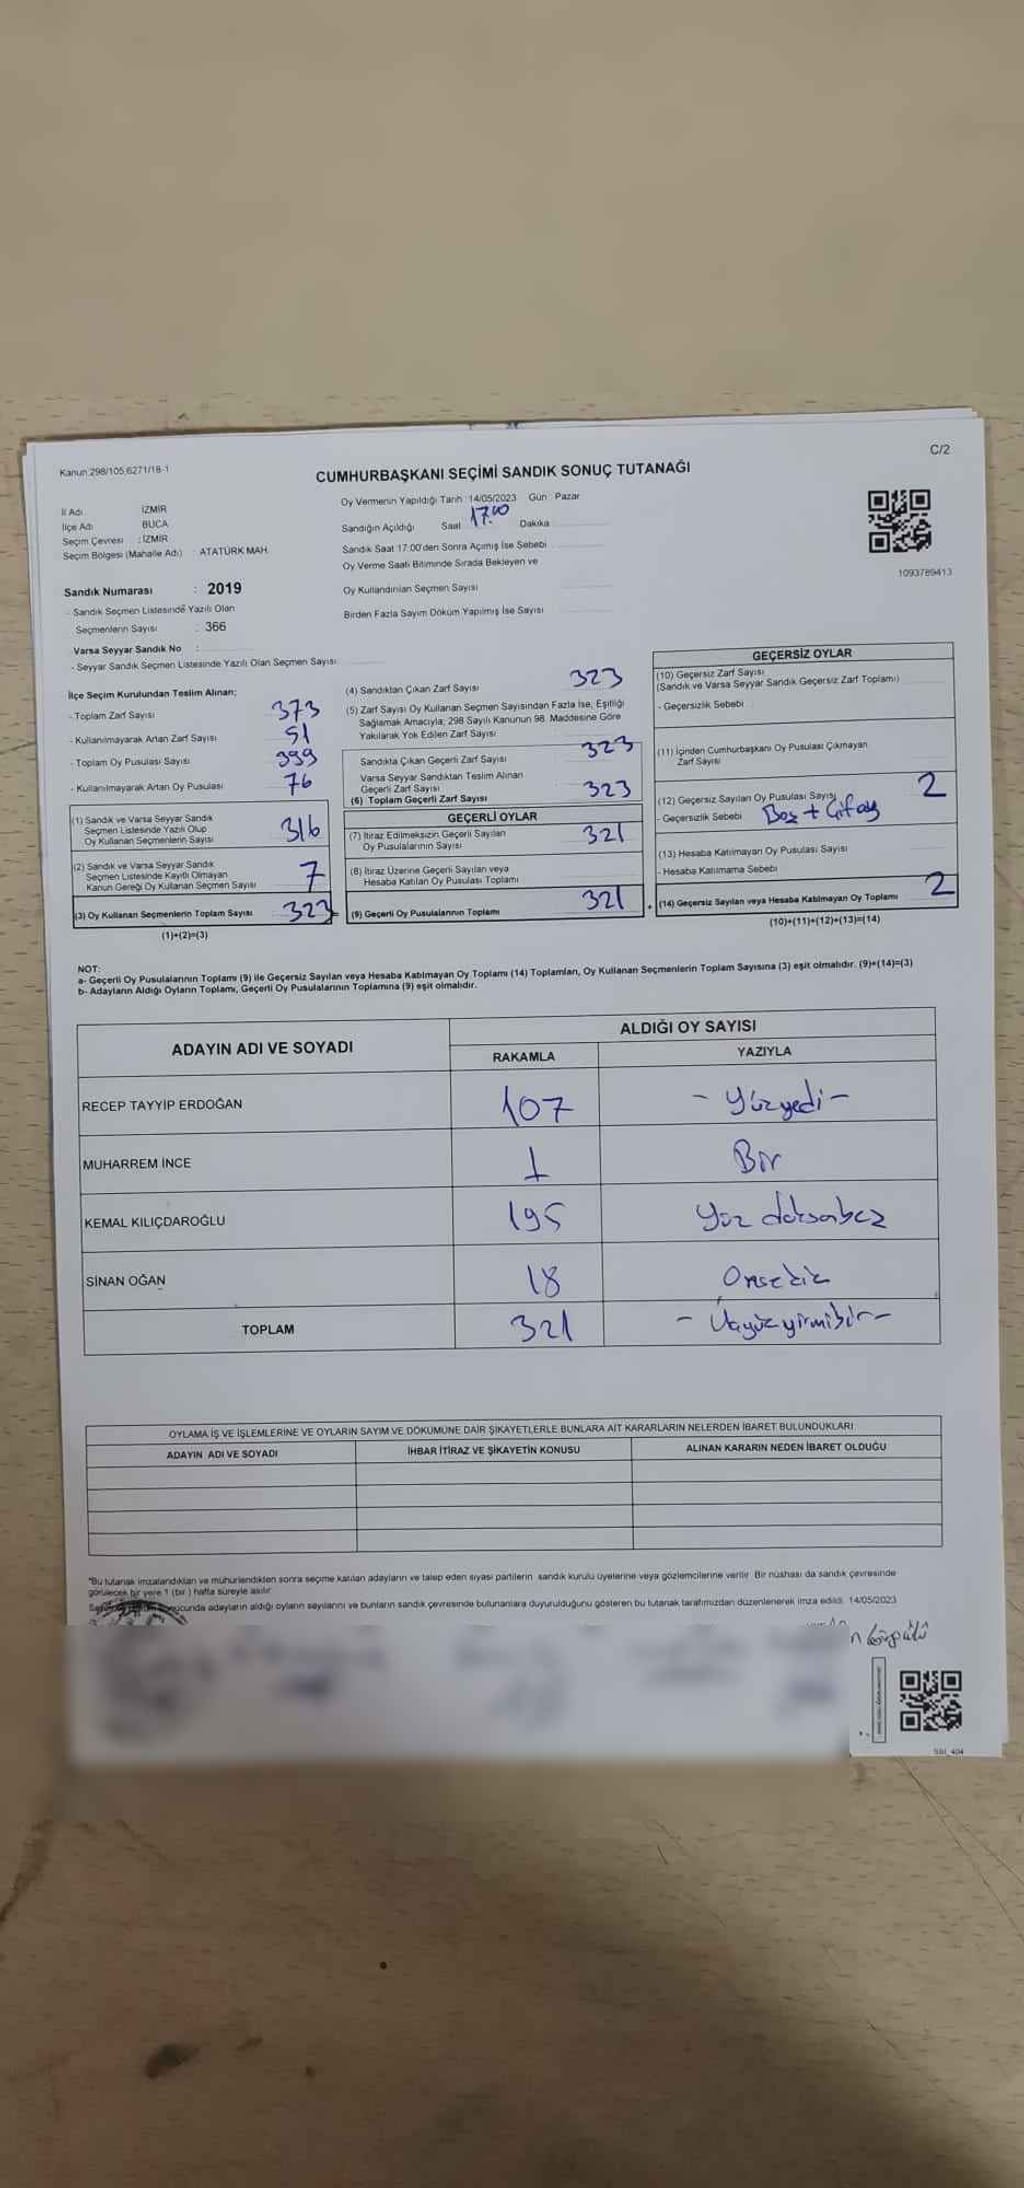 Kanun:298/105,6271/18-1
C/2
CUMHURBAŞKANI SEÇİMİ SANDIK SONUÇ TUTANAĞI
İl Adı İZMİR
İlçe Adı BUCA
Seçim Çevresi : İZMİR
Seçim Bölgesi (Mahalle Adı) : ATATÜRK MAH.
Sandık Numarası : 2019
- Sandık Seçmen Listesinde Yazılı Olan
Seçmenlerin Sayısı : 366
Varsa Seyyar Sandık No :
- Seyyar Sandık Seçmen Listesinde Yazılı Olan Seçmen Sayısı:
Oy Vermenin Yapıldığı Tarih : 14/05/2023 Gün : Pazar
Sandığın Açıldığı Saat 17.00 Dakika
Sandık Saat 17:00'den Sonra Açımış İse Sebebi
Oy Verme Saati Bitiminde Sırada Bekleyen ve
Oy Kullandırılan Seçmen Sayısı
Birden Fazla Sayım Döküm Yapılmış İse Sayısı
1093789413
İlçe Seçim Kurulundan Teslim Alınan;
- Toplam Zarf Sayısı 373
- Kullanılmayarak Artan Zarf Sayısı 51
- Toplam Oy Pusulası Sayısı 399
- Kullanılmayarak Artan Oy Pusulası 76
(1) Sandık ve Varsa Seyyar Sandık
Seçmen Listesinde Yazılı Olup
Oy Kullanan Seçmenlerin Sayısı 316
(2) Sandık ve Varsa Seyyar Sandık
Seçmen Listesinde Kayıtlı Olmayan
Kanun Gereği Oy Kullanan Seçmen Sayısı 7
(3) Oy Kullanan Seçmenlerin Toplam Sayısı 323
(1)+(2)=(3)
(4) Sandıktan Çıkan Zarf Sayısı 323
(5) Zarf Sayısı Oy Kullanan Seçmen Sayısından Fazla İse, Eşitliği
Sağlamak Amacıyla; 298 Sayılı Kanunun 98. Maddesine Göre
Yakılarak Yok Edilen Zarf Sayısı
Sandıkta Çıkan Geçerli Zarf Sayısı 323
Varsa Seyyar Sandıktan Teslim Alınan
Geçerli Zarf Sayısı
(6) Toplam Geçerli Zarf Sayısı 323
GEÇERLİ OYLAR
(7) İtiraz Edilmeksizin Geçerli Sayılan
Oy Pusulalarının Sayısı 321
(8) İtiraz Üzerine Geçerli Sayılan veya
Hesaba Katılan Oy Pusulası Toplamı
= (9) Geçerli Oy Pusulalarının Toplamı 321
GEÇERSİZ OYLAR
(10) Geçersiz Zarf Sayısı
(Sandık ve Varsa Seyyar Sandık Geçersiz Zarf Toplamı)
- Geçersizlik Sebebi
(11) İçinden Cumhurbaşkanı Oy Pusulası Çıkmayan
Zarf Sayısı
(12) Geçersiz Sayılan Oy Pusulası Sayısı 2
- Geçersizlik Sebebi Boş +
(13) Hesaba Katılmayan Oy Pusulası Sayısı
- Hesaba Katılmama Sebebi
+ (14) Geçersiz Sayılan veya Hesaba Katılmayan Oy Toplamı 2
(10)+(11)+(12)+(13)=(14)
NOT:
a- Geçerli Oy Pusulalarının Toplamı (9) ile Geçersiz Sayılan veya Hesaba Katılmayan Oy Toplamı (14) Toplamları, Oy Kullanan Seçmenlerin Toplam Sayısına (3) eşit olmalıdır. (9)+(14)=(3)
b- Adayların Aldığı Oyların Toplamı, Geçerli Oy Pusulalarının Toplamına (9) eşit olmalıdır.
ADAYIN ADI VE SOYADI ALDIĞI OY SAYISI
RAKAMLA YAZIYLA
RECEP TAYYİP ERDOĞAN 107 - Yüzyedi -
MUHARREM İNCE 1 Bir
KEMAL KILIÇDAROĞLU 195 Yüz doksanbeş
SİNAN OĞAN 18 Onsekiz
TOPLAM 321 - Üçyüzyirmibir -
OYLAMA İŞ VE İŞLEMLERİNE VE OYLARIN SAYIM VE DÖKÜMÜNE DAİR ŞİKAYETLERLE BUNLARA AİT KARARLARIN NELERDEN İBARET BULUNDUKLARI
ADAYIN ADI VE SOYADI İHBAR İTİRAZ VE ŞİKAYETİN KONUSU ALINAN KARARIN NEDEN İBARET OLDUĞU
*Bu tutanak imzalandıktan ve mühürlendikten sonra seçime katılan adayların ve talep eden siyasi partilerin sandık kurulu üyelerine veya gözlemcilerine verilir. Bir nüshası da sandık çevresinde
görülecek bir yere 1 (bir ) hafta süreyle asılır.
ucunda adayların aldığı oyların sayılarını ve bunların sandık çevresinde bulunanlara duyurulduğunu gösteren bu tutanak tarafımızdan düzenlenerek imza edildi. 14/05/2023